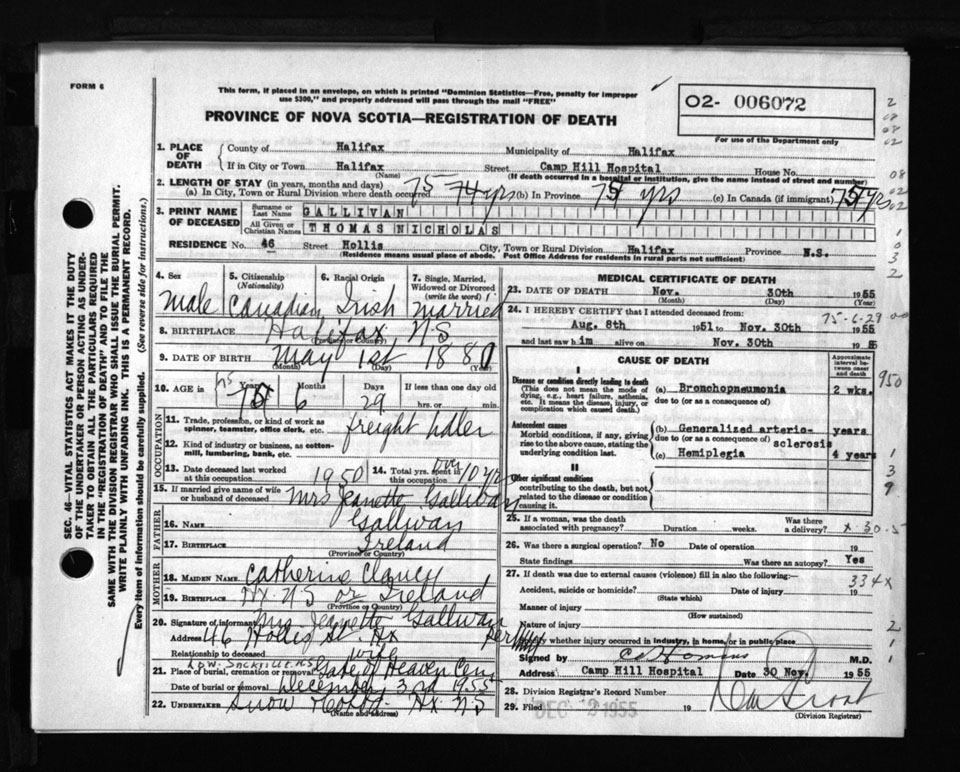 FORM 6
This form, if placed in an envelope, on which is printed "Dominion Statistics—Free, penalty for improper
use $300," and properly addressed will pass through the mail "FREE"
PROVINCE OF NOVA SCOTIA—REGISTRATION OF DEATH
O2- 006072
For use of the Department only
1. PLACE OF DEATH
County of Halifax Municipality of Halifax
If in City or Town Halifax Street Camp Hill Hospital House No.
(Name) (If death occurred in a hospital or institution, give the name instead of street and number)
2. LENGTH OF STAY (in years, months and days)
(a) In City, Town or Rural Division where death occurred 75 74 yrs (b) In Province 75 yrs (c) In Canada (if immigrant) 75 yrs
3. PRINT NAME OF DECEASED
Surname or Last Name GALLIVAN
All Given or Christian Names THOMAS NICHOLAS
RESIDENCE No. 46 Street Hollis City, Town or Rural Division Halifax Province N.S.
(Residence means usual place of abode. Post Office Address for residents in rural parts not sufficient)
4. Sex
5. Citizenship (Nationality)
6. Racial Origin
7. Single, Married, Widowed or Divorced (write the word)
Male Canadian Irish Married
8. BIRTHPLACE Halifax N S
(Province or Country)
9. DATE OF BIRTH May 1st 1880
(Month) (Day) (Year)
10. AGE in Years Months Days If less than one day old
75 6 29 hrs. or min.
OCCUPATION
11. Trade, profession, or kind of work as spinner, teamster, office clerk, etc. freight hdler
12. Kind of industry or business, as cotton-mill, lumbering, bank, etc.
13. Date deceased last worked at this occupation 1950
14. Total yrs. spent in this occupation over 10 yrs
15. If married give name of wife or husband of deceased Mrs Jeanette Gallivan
FATHER
16. NAME Gallivan
17. BIRTHPLACE Ireland
(Province or Country)
MOTHER
18. MAIDEN NAME Catherine Clancy
19. BIRTHPLACE Hx. N S or Ireland
(Province or Country)
20. Signature of informant Mrs. Jeanette Gallivan
Address 46 Hollis St. Hx per
Relationship to deceased wife
Low. Sackville NS
21. Place of burial, cremation or removal Gate of Heaven Cem
Date of burial or removal December 3rd 1955
22. UNDERTAKER Snow Hx N S
(Name and address)
MEDICAL CERTIFICATE OF DEATH
23. DATE OF DEATH Nov. 30th 1955
(Month) (Day) (Year)
24. I HEREBY CERTIFY that I attended deceased from:
75-6-29
Aug. 8th 1951 to Nov. 30th 1955
and last saw him alive on Nov. 30th 1955
CAUSE OF DEATH
Approximate interval between onset and death
I
Disease or condition directly leading to death
(This does not mean the mode of dying, e.g., heart failure, asthenia, etc. It means the disease, injury, or complication which caused death.)
(a) Bronchopneumonia 2 wks.
due to (or as a consequence of)
Antecedent causes
Morbid conditions, if any, giving rise to the above cause, stating the underlying condition last.
(b) Generalized arterio- years
due to (or as a consequence of) sclerosis
(c) Hemiplegia 4 years
II
Other significant conditions
contributing to the death, but not related to the disease or condition causing it.
25. If a woman, was the death associated with pregnancy? Duration weeks. Was there a delivery? x-30-5
26. Was there a surgical operation? No Date of operation 19
State findings Was there an autopsy? Yes
27. If death was due to external causes (violence) fill in also the following:
334x
Accident, suicide or homicide? Date of injury 19
(State which)
Manner of injury
(How sustained)
Nature of injury
Specify whether injury occurred in industry, in home, or in public place
Signed by M.D.
Camp Hill Hospital Date 30 Nov. 1955
28. Division Registrar's Record Number
29. Filed DEC 2 1955 19
(Division Registrar)
950
139
SEC. 46—VITAL STATISTICS ACT MAKES IT THE DUTY
OF THE UNDERTAKER OR PERSON ACTING AS UNDER-
TAKER TO OBTAIN ALL THE PARTICULARS REQUIRED
IN THE "REGISTRATION OF DEATH" AND TO FILE THE
SAME WITH THE DIVISION REGISTRAR WHO SHALL ISSUE THE BURIAL PERMIT.
WRITE PLAINLY WITH UNFADING INK. THIS IS A PERMANENT RECORD.
Every item of information should be carefully supplied. (See reverse side for instructions.)